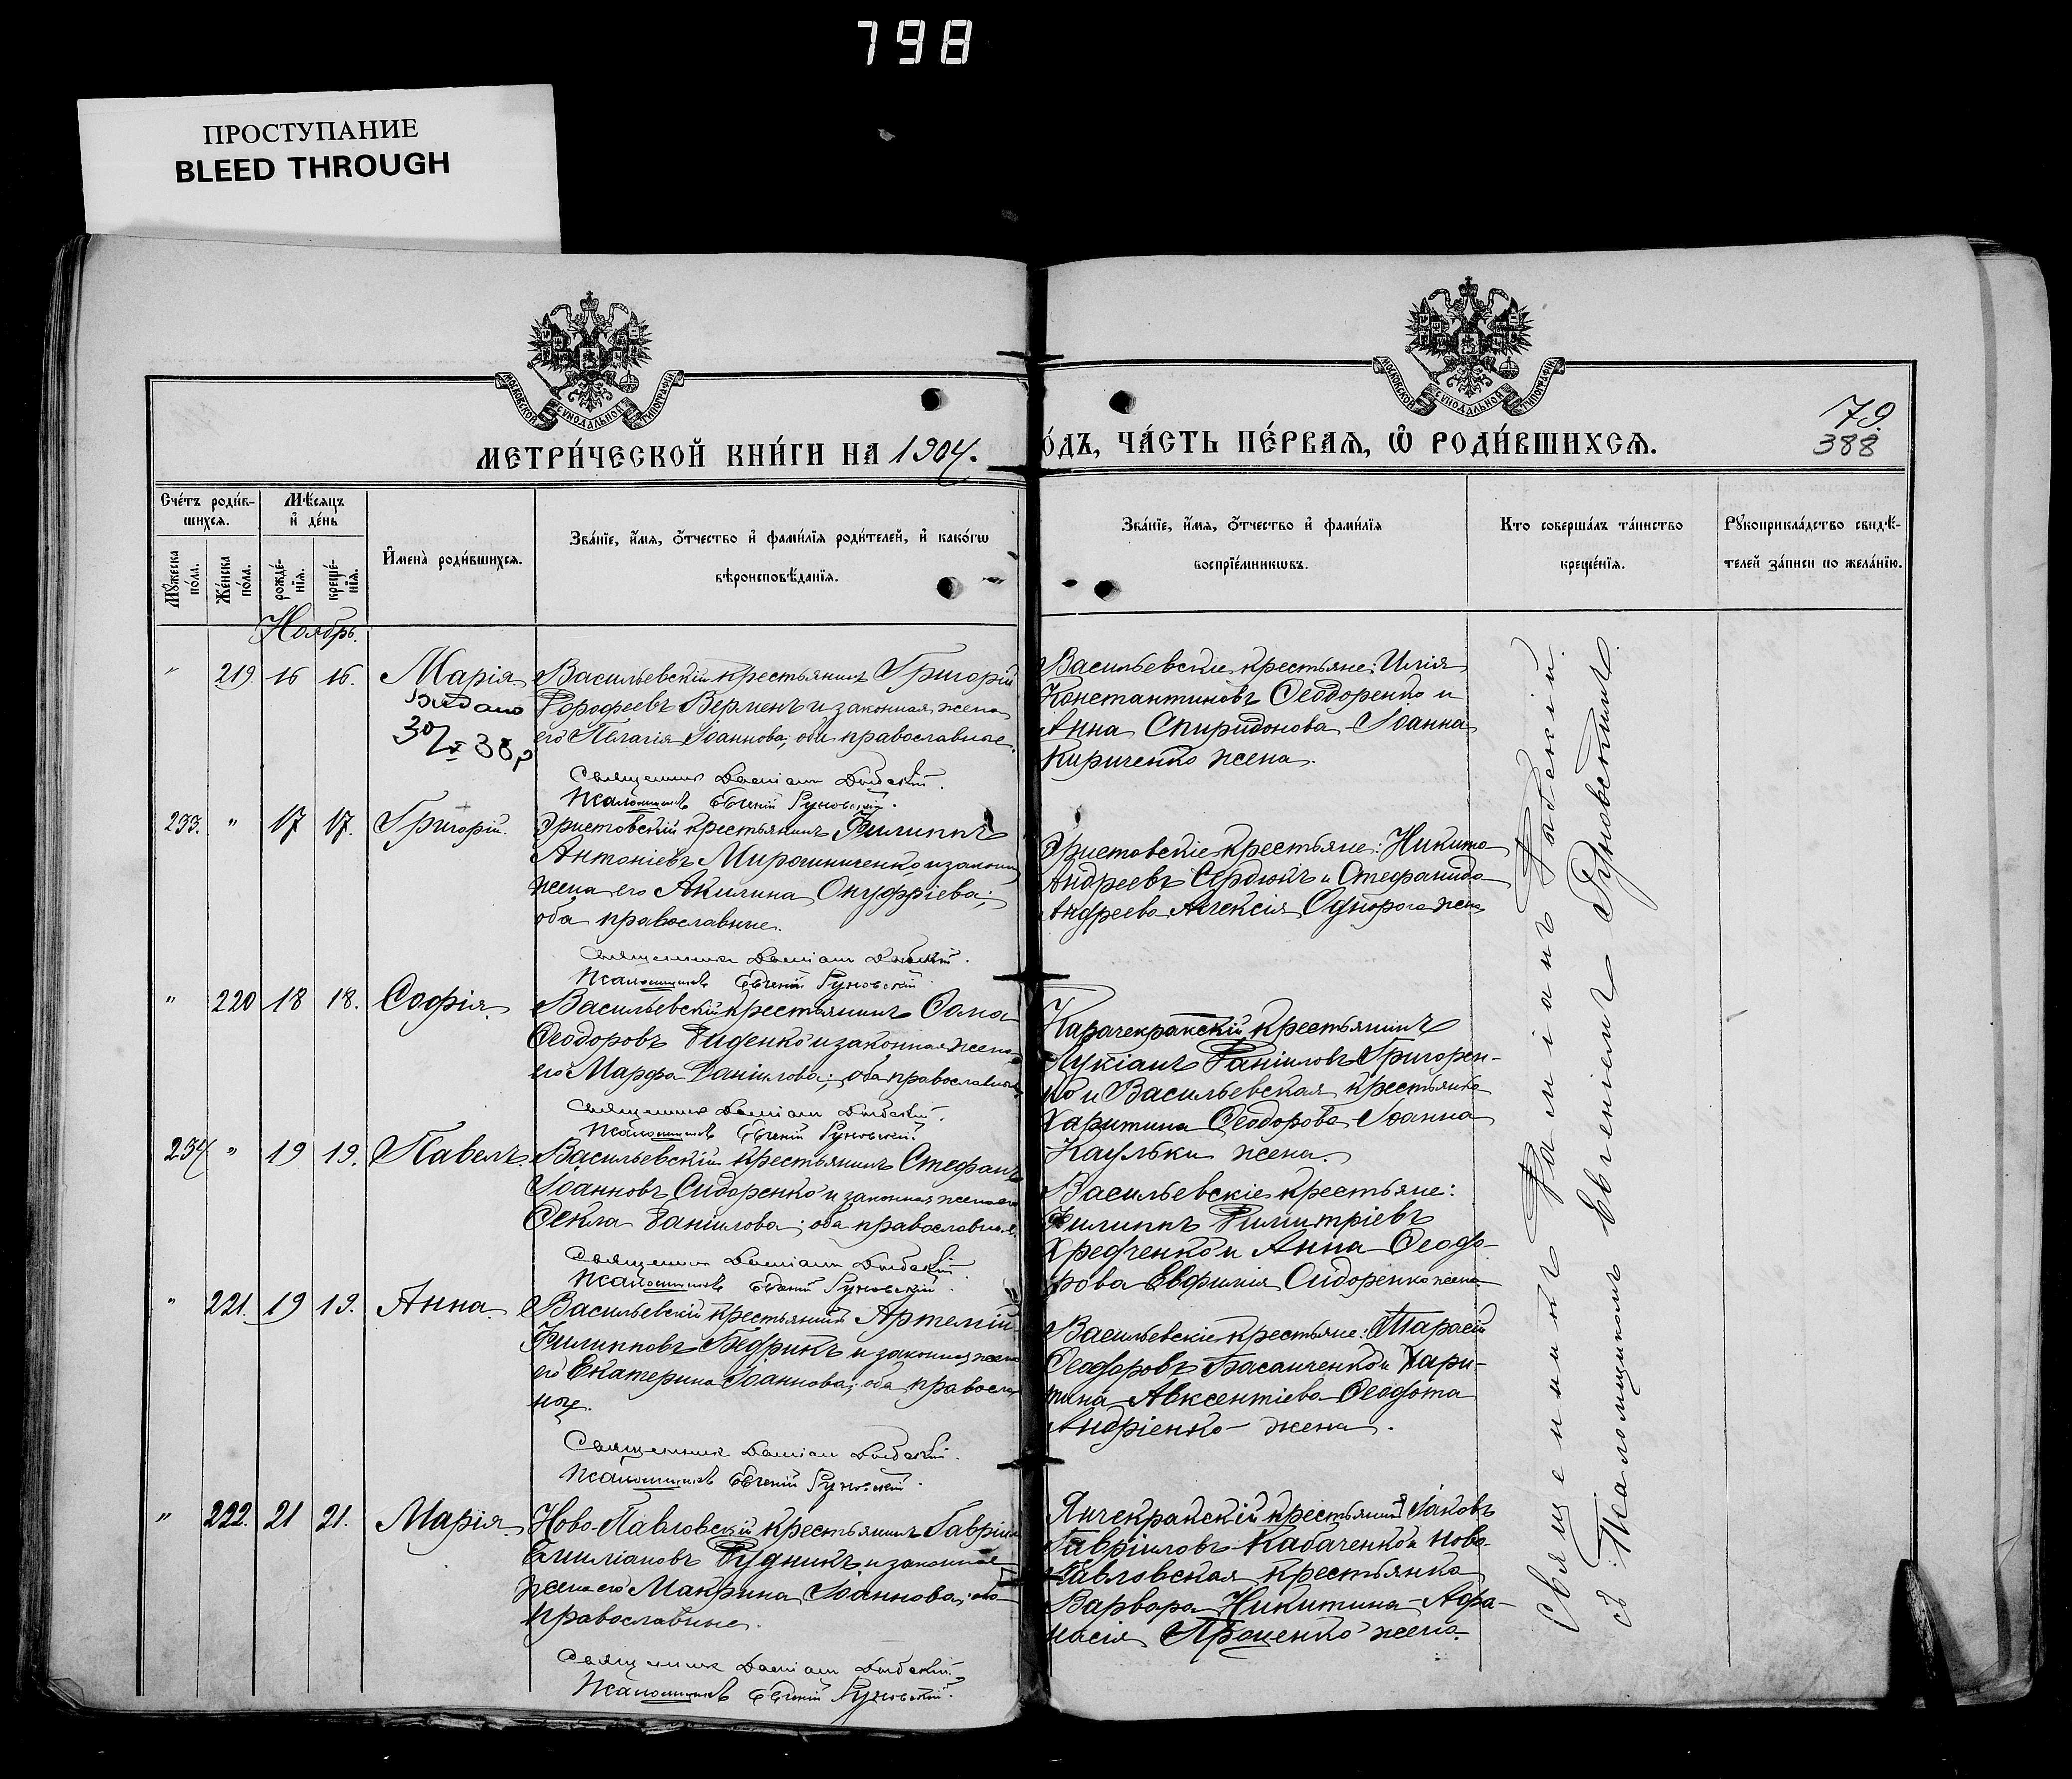 798
ПРОСТУПАНИЕ
BLEED THROUGH
МОСКОВСКОЙ СѴНОДАЛЬНОЙ ТИПОГРАФІИ
МОСКОВСКОЙ СѴНОДАЛЬНОЙ ТИПОГРАФІИ
79
388
МЕТРИ́ЧЕСКОЙ КНИ́ГИ НА 1904.
О́ДЪ, ЧА́СТЬ ПЕ́РВАѦ, Ѡ҆ РОДИ́ВШИХСѦ.
Сче́тъ роди́в-
шихсѧ.
Мꙋ́жеска по́ла.
Же́нска по́ла.
Мѣ́сѧцъ
и҆ де́нь
рожде́-нїѧ.
креще́-нїѧ.
И҆мена̀ роди́вшихсѧ.
Зва́нїе, и҆́мѧ, ѻ҆́тчество и҆ фами́лїѧ роди́телей, и҆ како́гѡ
вѣроисповѣ́данїѧ.
Зва́нїе, и҆́мѧ, ѻ҆́тчество и҆ фами́лїѧ
воспрїе́мникѡвъ.
Кто соверша́лъ та́инство
креще́нїѧ.
Рꙋкоприкла́дство свидѣ́-
телей за́писи по жела́нїю.
Ноябрь.
" 219 16 16. Марія
Видано
Васильевскій крестьянинъ Григорій
Дорофеевъ Вермен и законная жена
его Пелагія Іоаннова; оба православные.
Священникъ Даміанъ
Псаломщикъ Евгеній Руновскій.
Васильевские крестьяне: Илія
Константиновъ Ѳеодоренко и
Анна Спиридонова Іоанна
Кириченко жена.
233. " 17 17. Григорій.
Христовскій крестьянинъ Филиппъ
Антоніевъ Мирошниченко и законн
жена его Акилина Онуфріева;
оба православные.
Священникъ Даміанъ
Псаломщикъ Евгеній Руновскій.
Христовскіе крестьяне: Никита
Андреевъ Сердюкъ и Стефанида
Андреева Алексія Однорога жена
" 220 18 18. Софія.
Васильевскій крестьянинъ
Ѳеодоровъ Диденко и законная жена
его Марфа Даніилова; оба православные
Священникъ Даміанъ
Псаломщикъ Евгеній Руновскій.
Карачекракскій крестьянинъ
Лукіанъ Даніиловъ Григорен-
ко и Васильевская крестьянка
Харитина Ѳеодорова Іоанна
жена.
234 " 19 19. Павелъ.
Васильевскій крестьянинъ Стефанъ
Іоанновъ Сидоренко и законная жена его
Ѳекла Даніилова; оба православные.
Священникъ Даміанъ
Псаломщикъ Евгеній Руновскій.
Васильевскіе крестьяне:
Филиппъ Димитріевъ
и Анна Ѳеодо-
рова Евфимія Сидоренко жена
" 221. 19 19. Анна.
Васильевскій крестьянинъ Артемій
Филипповъ Бедрикъ и законная жена
его Екатерина Іоаннова; оба правосла
ные.
Священникъ Даміанъ
Псаломщикъ Евгеній Руновскій.
Васильевскіе крестьяне: Тарасій
Ѳеодоровъ и Хари-
тина Авксентіева Ѳеодота
Андріенко жена.
" 222. 21 21. Марія
Ново-Павловскій крестьянинъ Гавріилъ
Емиліановъ Рудникъ и законная
жена его Макрина Іоаннова; оба
православные.
Священникъ Даміанъ
Псаломщикъ Евгеній Руновскій.
Янчекракскій крестьянинъ Іаковъ
Гавріиловъ Кабаченко и Ново-
Павловская крестьянка
Варвара Никитина Афа-
насія Проценко жена.
Священникъ Даміанъ
съ Псаломщикомъ Евгеніемъ Руновскимъ.